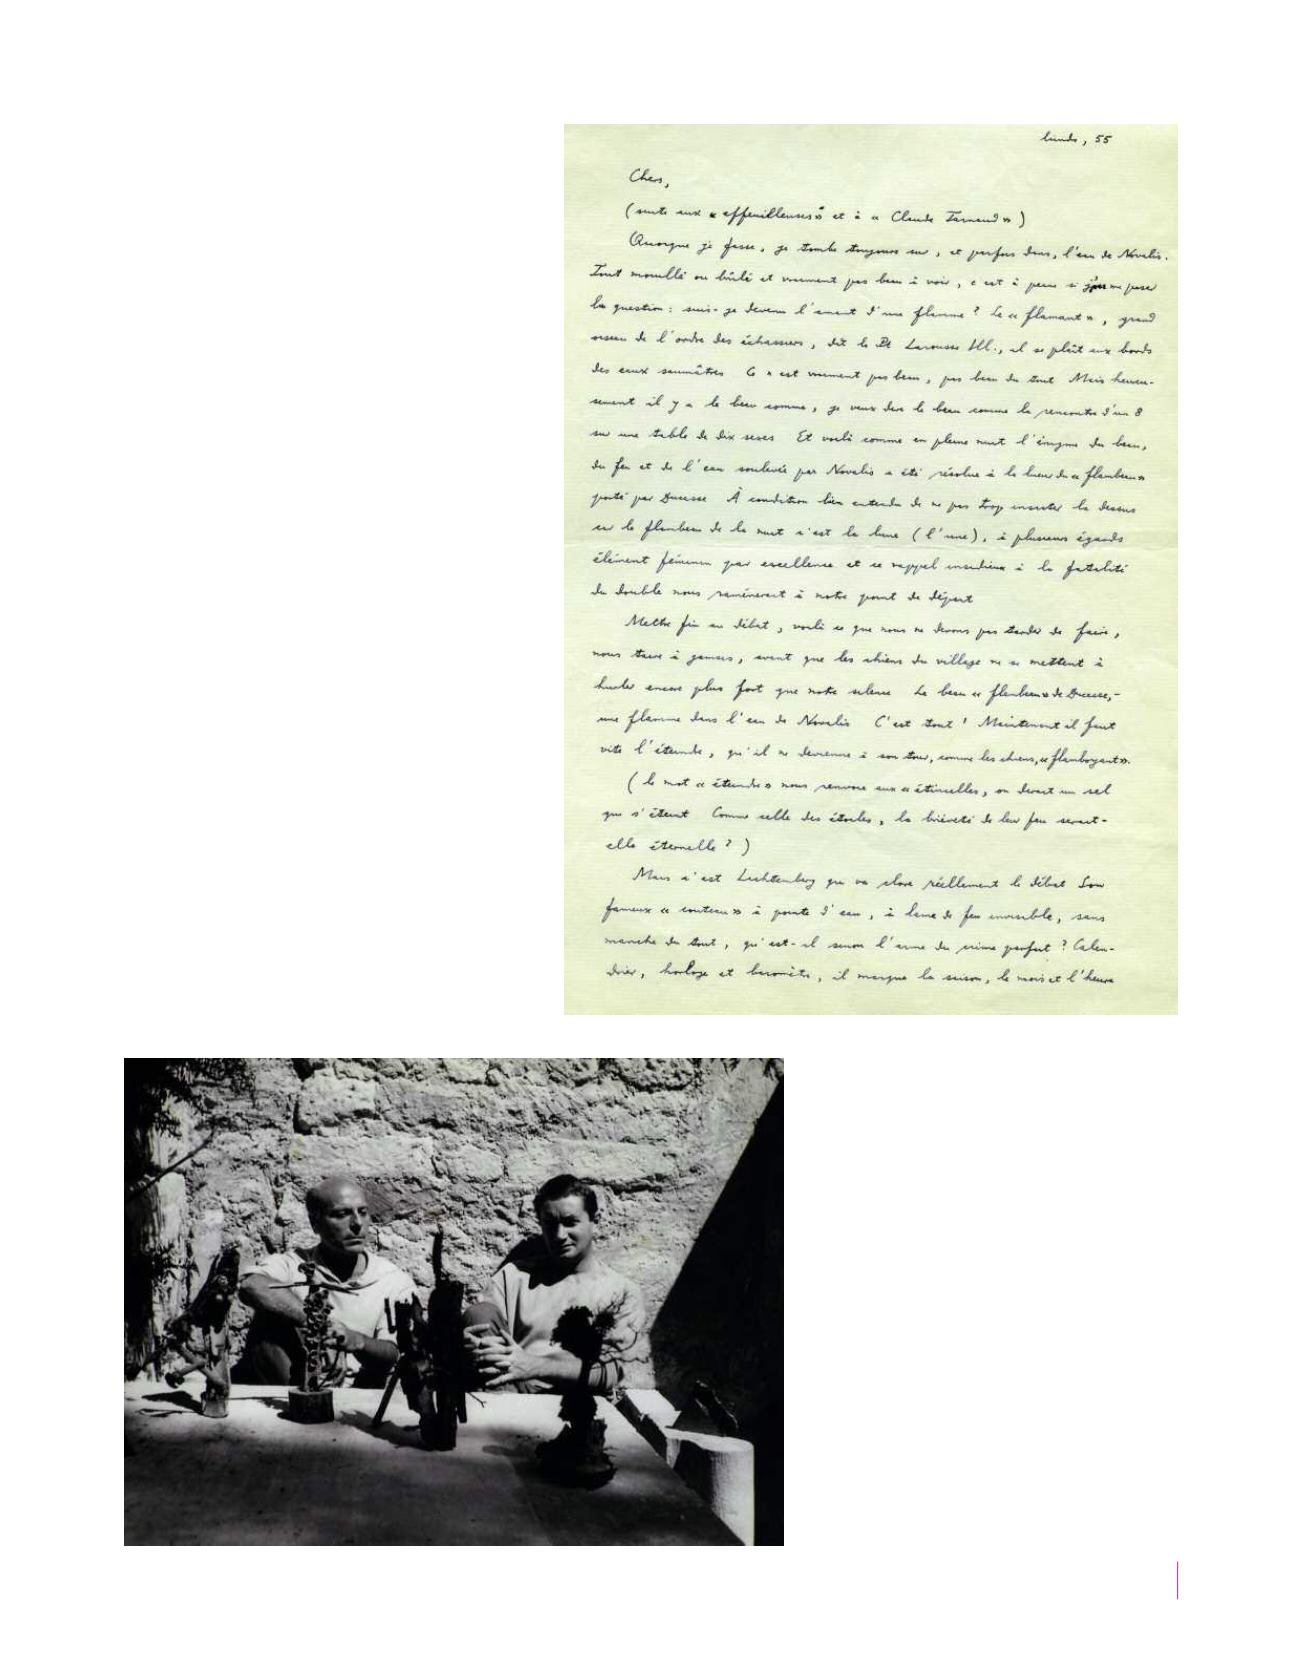 lundi, 55
Chers,
(suite aux « effeuilleuses » et à « Claude Tarnaud »)
Quoique je fasse, je tombe toujours sur, et parfois dans, l'eau de Novalis.
Tout mouillé ou brûlé et vraiment pas beau à voir, c'est à peine si j'ose me poser
la question : suis-je devenu l'amant d'une flamme ? Le « flamant », grand
oiseau de l'ordre des échassiers, dit le Pt Larousse Ill., il se plaît aux bords
des eaux saumâtres Ce n'est vraiment pas beau, pas beau du tout Mais heureu-
sement il y a le beau comme, je veux dire le beau comme la rencontre d'un 8
sur une table de dix sexes Et voilà comme en pleine nuit l'énigme du beau,
du feu et de l'eau soulevée par Novalis a été résolue à la lueur du « flambeau »
porté par Ducasse À condition bien entendu de ne pas trop insister là dessus
car le flambeau de la nuit c'est la lune (l'une), à plusieurs égards
élément féminin par excellence et ce rappel insidieux à la fatalité
du double nous ramènerait à notre point de départ
Mettre fin au débat, voilà ce que nous ne devons pas tarder de faire,
nous taire à jamais, avant que les chiens du village ne se mettent à
hurler encore plus fort que notre silence Le beau « flambeau » de Ducasse,-
une flamme dans l'eau de Novalis C'est tout ! Maintenant il faut
vite l'éteindre, qu'il ne devienne à son tour, comme les chiens, « flamboyant ».
(le mot « éteindre » nous renvoie aux « étincelles, on dirait un sel
qui s'éteint Comme celle des étoiles, la brièveté de leur feu serait-
elle éternelle ? )
Mais c'est Lichtenberg qui va clore réellement le débat Son
fameux « couteau » à pointe d'eau, à lame de feu invisible, sans
manche du tout, qu'est-il sinon l'arme du crime parfait ? Calen-
drier, horloge et baromètre, il marque la saison, le mois et l'heure